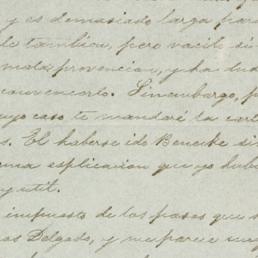 y es demasiado larga para
tambien, pero vacilo si
provencion, y ha
convencerlo. Sinembargo, p
cuyo caso te mandaré la cart
s. El haberse ido Beneke si
esplicacion que yo hub
y util.
impuesto de los pasos que s
as Delgado, y me parece muy